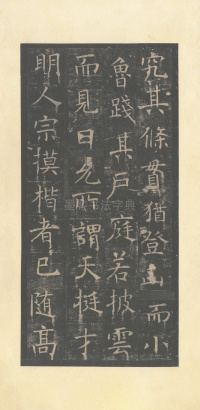 究其條貫猶登山而小
魯踐其戶庭若披雲
而見日允所謂天挺才
明人宗摸楷者已随髙